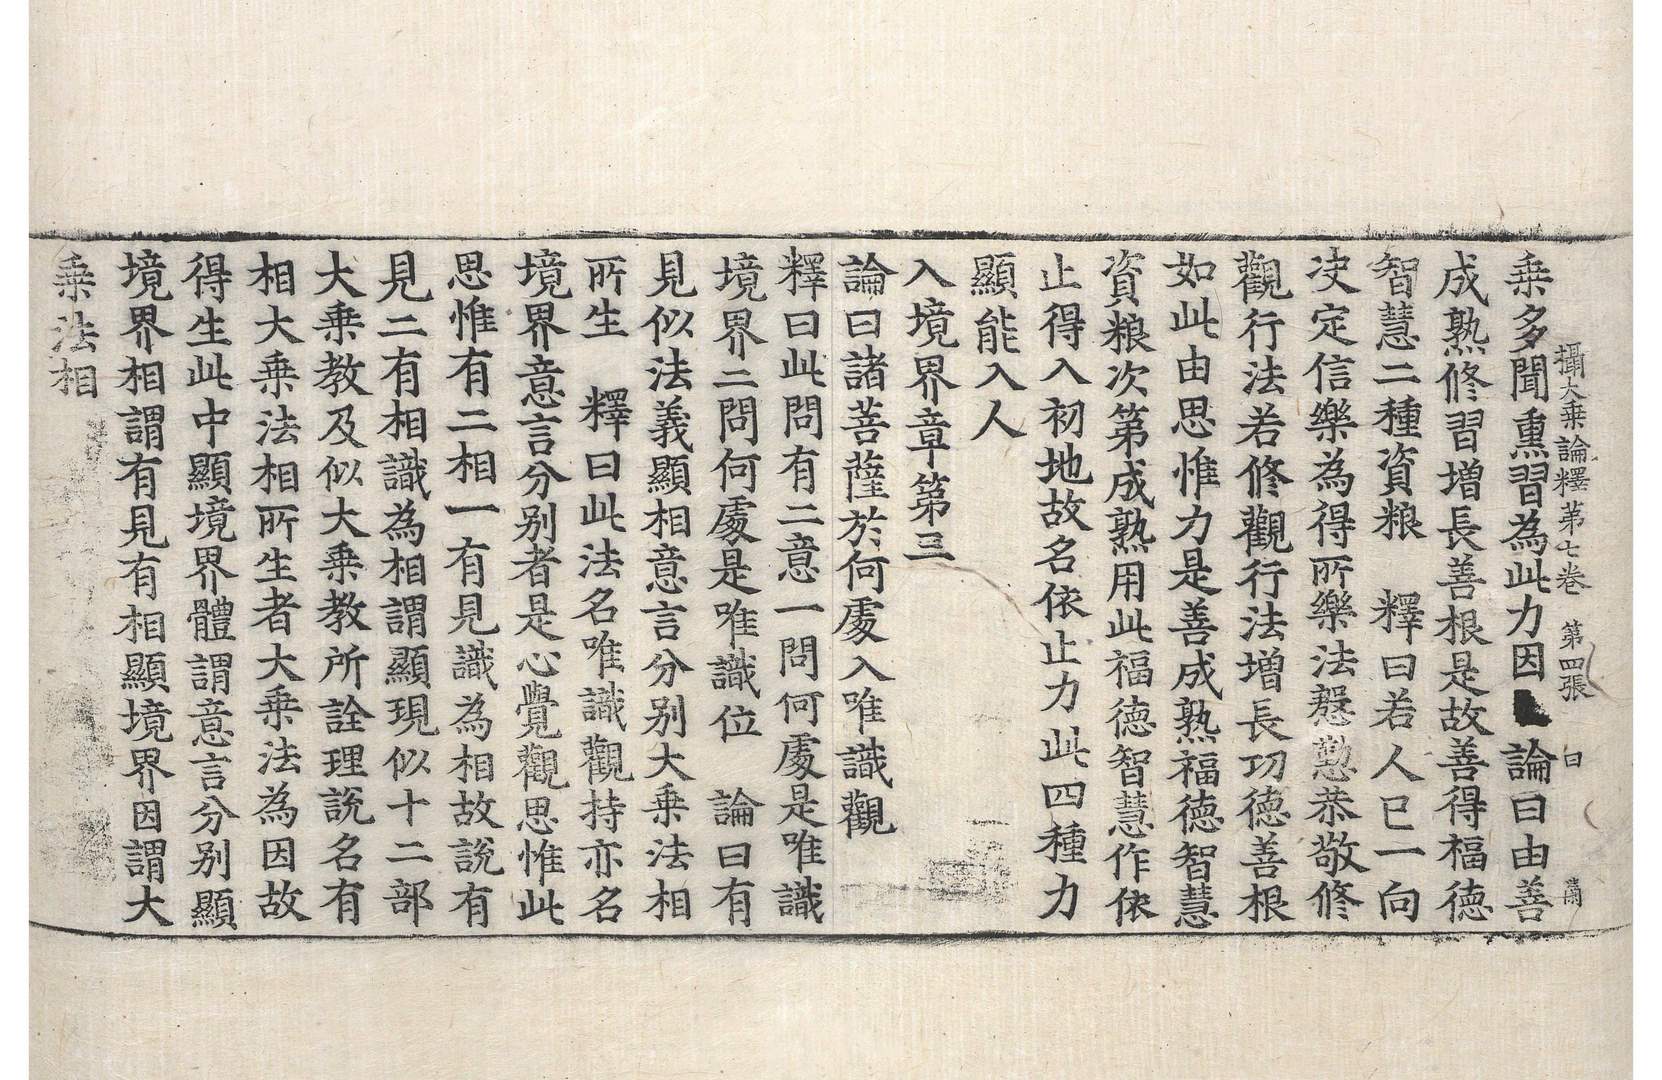 攝大乗論釋第七卷 第四張 曰
乗多聞熏習為此力因 論曰由善
成熟修習増長善根是故善得福德
智慧二種資粮 釋曰若人已一向
决定信樂為得所樂法慇懃恭敬修
觀行法若修觀行法増長功德善根
如此由思惟力是善成熟福德智慧
資粮次第成熟用此福德智慧作依
止得入初地故名依止力此四種力
顯能入人
入境界章第三
論曰諸菩薩於何處入唯識觀
釋曰此問有二意一問何處是唯識
境界二問何處是唯識位 論曰有
見似法義顯相意言分别大乗法相
所生 釋曰此法名唯識觀持亦名
境界意言分别者是心覺觀思惟此
思惟有二相一有見識為相故說有
見二有相識為相謂顯現似十二部
大乗教及似大乗教所詮理說名有
相大乗法相所生者大乗法為因故
得生此中顯境界體謂意言分别顯
境界相謂有見有相顯境界因謂大
乗法相